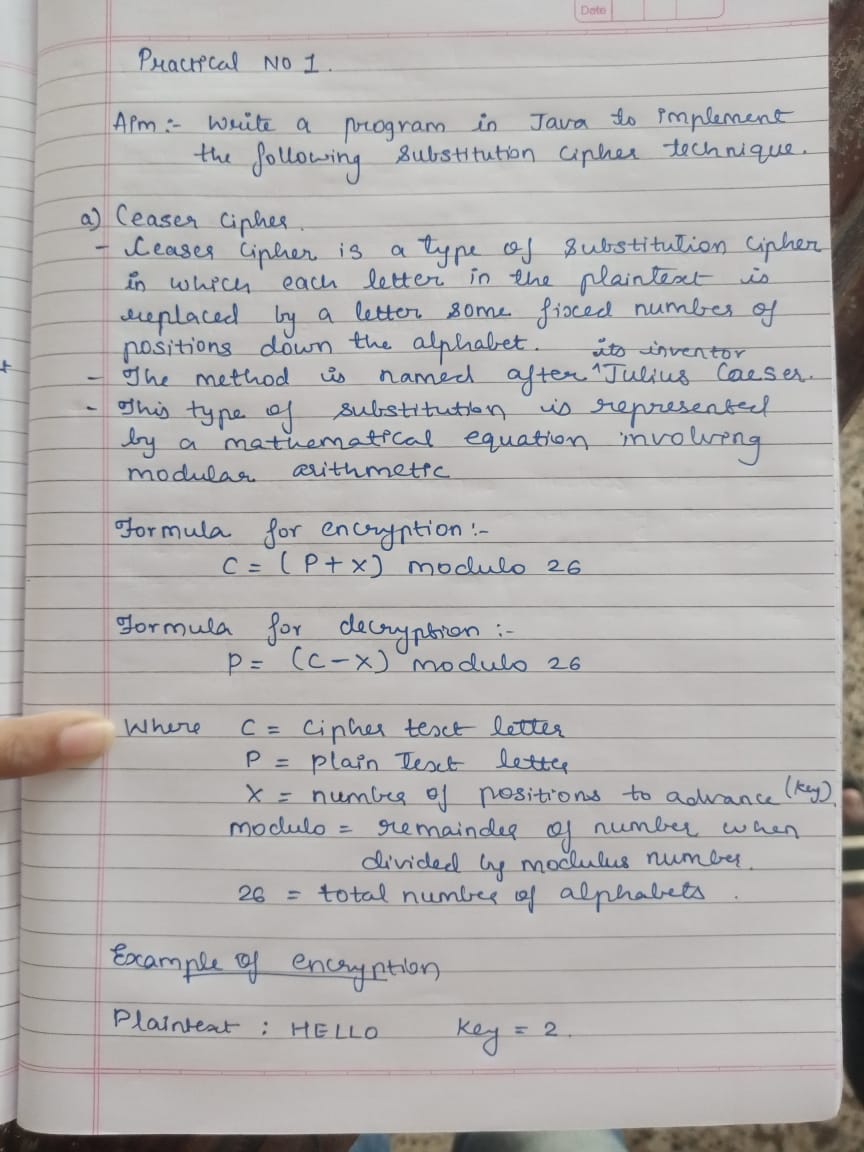 Date
Practical No 1.
Aim :- Write a program in Java to implement
the following substitution cipher technique.
a) Ceaser cipher.
- Ceaser cipher is a type of substitution cipher
in which each letter in the plaintext is
replaced by a letter some fixed number of
positions down the alphabet.
- The method is named after ^ its inventor Julius Caeser.
- This type of substitution is represented
by a mathematical equation involving
modular arithmetic
Formula for encryption :-
C = (P + x) modulo 26
Formula for decryption :-
P = (C - x) modulo 26
Where C = Cipher text letter
P = plain Text letter
X = number of positions to advance (key).
modulo = remainder of number when
divided by modulus number.
26 = total number of alphabets.
Example of encryption
Plaintext : HELLO key = 2.